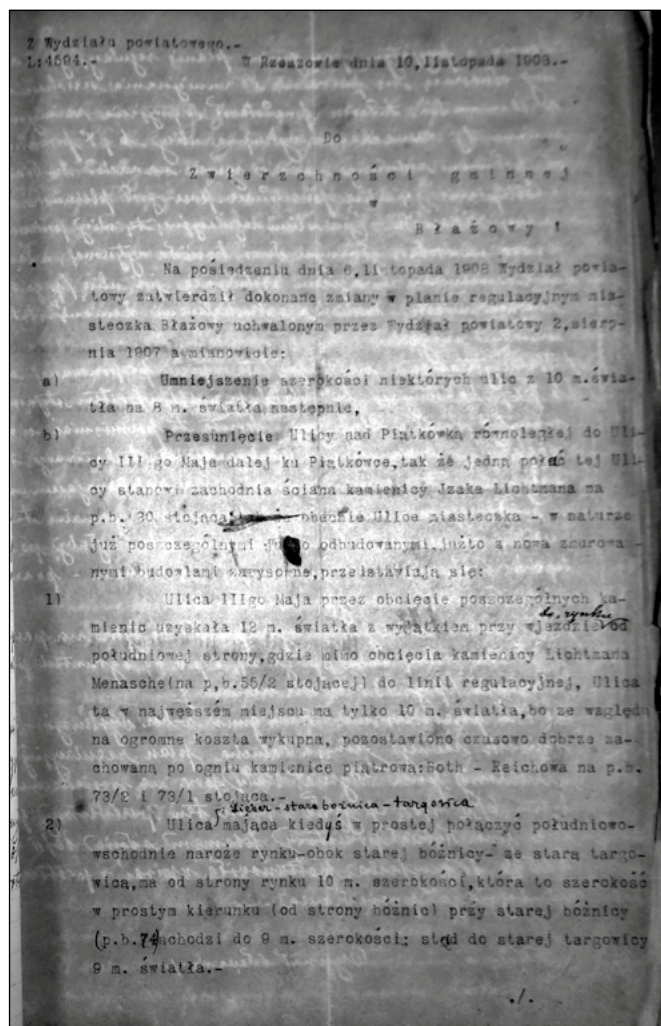 Z Wydziału powiatowego.-
L:4594.- W Rzeszowie dnia 10,listopada 1908.-
Do
Zwierzchności gminnej
w
Błażowy !
Na posiedzeniu dnia 6,listopada 1908 Wydział powia-
towy zatwierdził dokonane zmiany w planie regulacyjnym mia-
steczka Błażowy uchwalonym przez Wydział powiatowy 2,sierp-
nia 1907 a mianowicie:
a) Umniejszenie szerokości niektórych ulic z 10 m.świa-
tła na 8 m. światła następnie,
b) Przesunięcie Ulicy nad Piątkówką równoległej do Uli-
cy III go Maja dalej ku Piątkówce,tak że jedną połać tej Uli-
cy stanowi zachodnia ściana kamienicy Jzaka Lichtmana na
p.b. 30 stojąca obecnie Ulice miasteczka - w naturze
już poszczególnymi odbudowanymi,jużto z nowa zmurowa-
nymi budowlami zarysowne,przedstawiają się:
1) Ulica IIIgo Maja przez obcięcie poszczególnych ka-
mienic uzyskała 12 m. światła z wyjątkiem przy wjeździe do rynku od
południowej strony,gdzie mimo obcięcia kamienicy Lichtmana
Menasche(na p,b.55/2 stojącej) do linii regulacyjnej, Ulica
ta w najwęższém miejscu ma tylko 10 m. światła,bo ze względu
na ogromne koszta wykupna, pozostawiono czasowo dobrze za-
chowaną po ogniu kamienice piątrową:Both - Reichowa na p.b.
73/2 i 73/1 stojąca.-
2) Ulica : Lieber - stara bożnica - targowica mająca kiedyś w prostej połączyć południowo-
wschodnie naroże rynku-obok starej bóżnicy- ze starą targo-
wicą,ma od strony rynku 10 m. szerokości,która to szerokość
w prostym kierunku (od strony bóżnic) przy starej bóżnicy
(p.b.74)zachodzi do 9 m. szerokości; stąd do starej targowicy
9 m. światła.-
./.